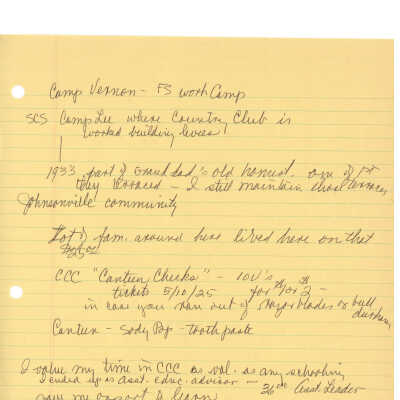 Camp Vernon - FS work Camp
SCS Camp Lee where Country Club is
worked building levees
1933 part of Granddad's old homest. one of 1st
they terraced - I still maintain those terraces
Johnsonville community
Lot of fam. around here lived here on that
CCC "Canteen Checks" - IOU's
tickets 5/10/25 for $1 or $2 -
in case you ran out of razor blades or bull
durham
Canteen - Sody Pop - tooth paste
I value my time in CCC as val. as any schooling
I ended up as asst. educ. advisor - 36.00 Asst. Leader
gave me opport to learn